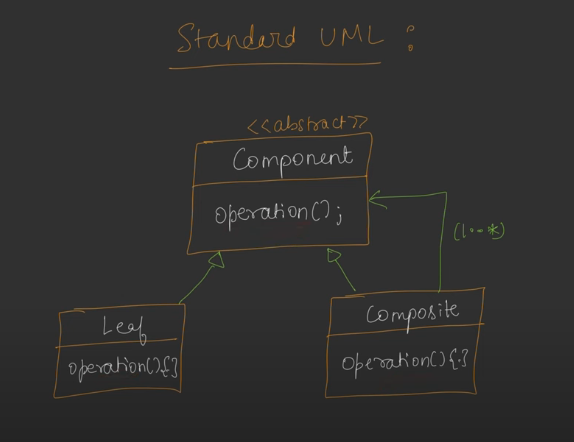 Standard UML :
<<abstract>>
Component
operation();
(1--*)
Leaf
operation(){}
Composite
operation(){.}